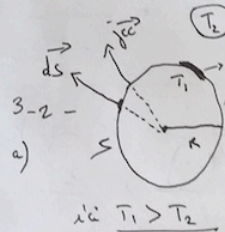 T₂
j⃗cc
d⃗s
T₁
3-2-
a)
S
R
ici T₁ > T₂